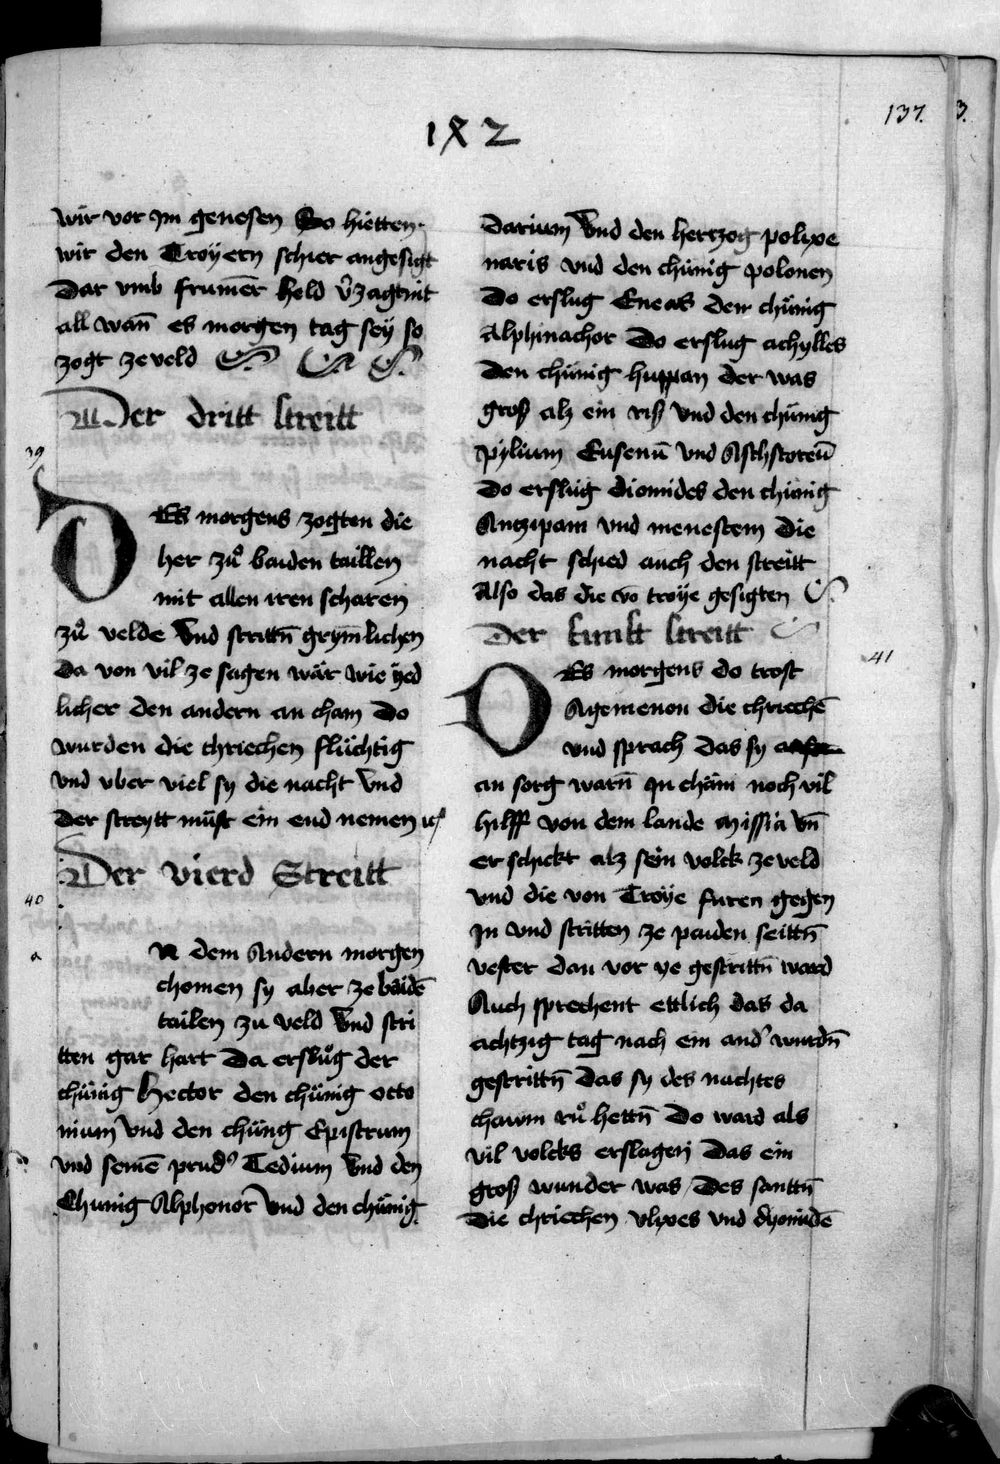 137. 3.
182
wir vor Im genesen So hietten
wir den Troyern schier angesigt
Dar vmb frumer held v̉zagt nit
all wañ es morgen tag seÿ so
zogt ze veld
Der dritt streitt
39
DEs morgens zogten die
her zuͦ baiden taillen
mit allen iren scharen
zuͦ velde Vnd strittñ grym̄lichen
da von vil ze sagen wär wie yed
licher den andern an cham Do
wurden die chriechen fluchtig
vnd vber viel sy die nacht Vnd
Der streytt muͤst ein end nemen
Der vierd Streitt
40
a
n dem Andern morgen
chomen sy aber ze baidē
tailen zu veld Vnd stri
tten gar hart Da ersluͦg der
chünig Hector den chünig octo
nium Vnd den chünig Epistrum
vnd seinē prud̉ Tedium Vnd den
Chunig Alphenor Vnd den chünig
Darium Vnd den herczog polixe
naris vnd den chünig polonen
Do erslug Eneas den chünig
Alphinachor Do erslug achylles
Den chünig huppan der was
groß alz ein riß Vnd den chünig
pylium Eusenū Vnd Aschstoreū
Do erslug diomides den chünig
Anczipam vnd menestem Die
nacht schied auch den streitt
Also das die vō troye gesigten
Der funft streitt
41
DEs morgens do trost
Agemenon die chriechē
vnd sprach das sy
an sorg warñ In chäm noch vil
hilff von dem lande Missia vñ
er schickt alz sein volck ze veld
vnd die von Troye furen gegen
In vnd stritten ze paiden seittñ
vester dan vor ye gestrittñ ward
Auch sprechent ettlich das da
achtzig tag nach ein and̉ wurdñ
gestrittñ Das sy des nachtes
chawm ruͦ hettñ Do ward als
vil volcks erslagen Das ein
groß wunder was Des santtñ
Die chriechen vlixes vnd dyomidē